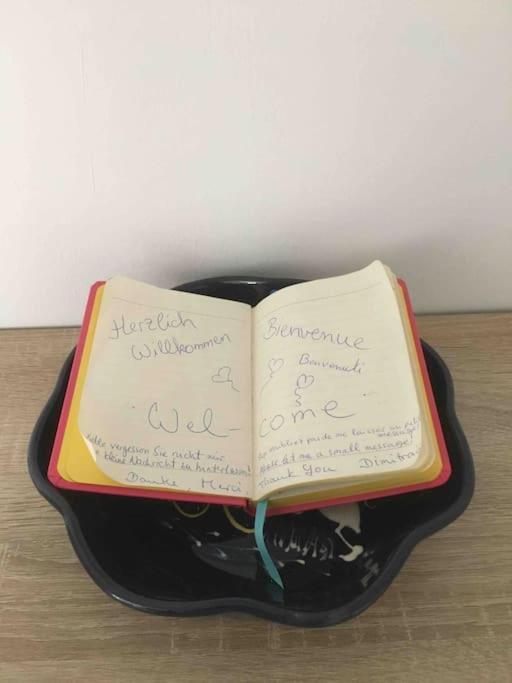 Herzlich
Willkommen
Wel-
Bitte vergessen Sie nicht mir
kleine Nachricht zu hinterlassen!
Danke, Merci
Bienvenue
Benvenuti
come
oubliez pas de me laisser un
message!
let me a small message!
Thank You Dimitra